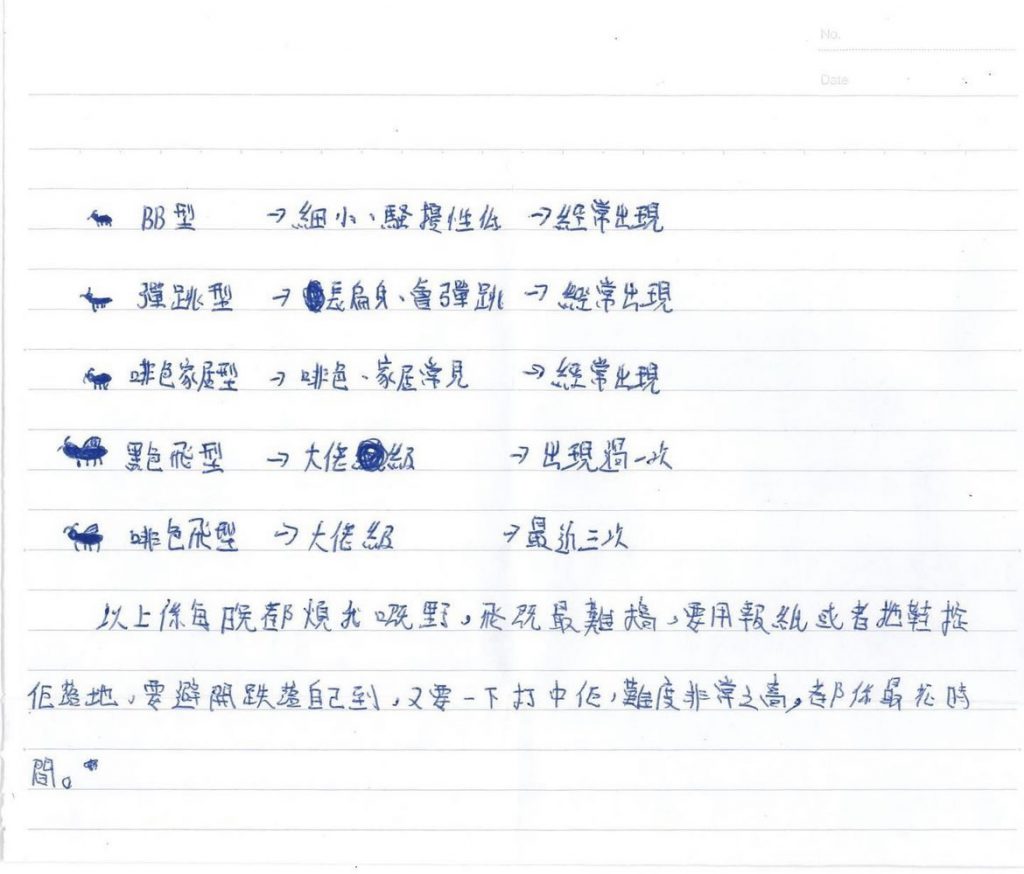 No.
Date
BB型 → 細小、騷擾性低 → 經常出現
彈跳型 → 長扁身、會彈跳 → 經常出現
啡色家居型 → 啡色、家居常見 → 經常出現
黑色飛型 → 大佬級 → 出現過一次
啡色飛型 → 大佬級 → 最近三次
以上係每晚都煩我嘅野,飛既最難搞,要用報紙或者拖鞋
佢落地,要避開跌落自己到,又要一下打中佢,難度非常之高,都係最花時
間。